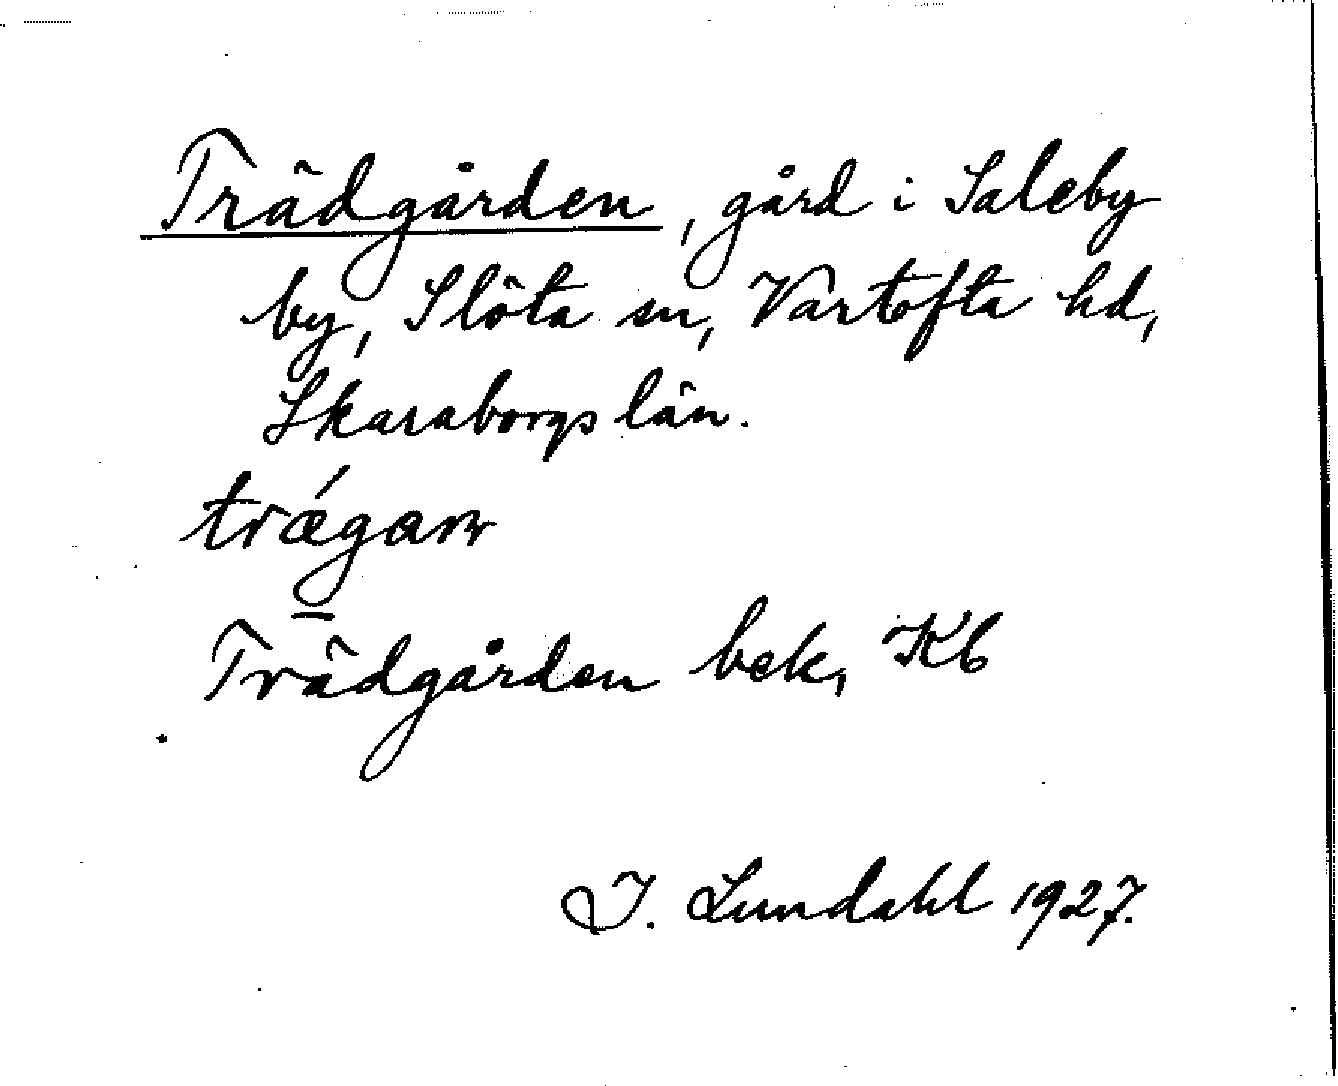 Trädgården, gård i Saleby
by, Slöta sn, Vartofta hd,
Skaraborgs län.
Trädgården bek, Kb
I. Lundahl 1927.